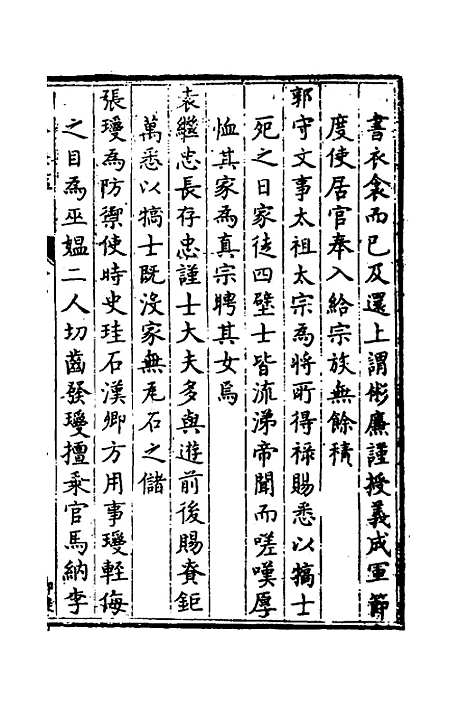 書衣衾而已及還上謂彬廉謹授義成軍節
度使居官奉入給宗族無餘積
郭守文事太祖太宗為將所得祿賜悉以犒士
死之日家徒四壁士皆流涕帝聞而嗟嘆厚
恤其家為真宗聘其女焉
袁繼忠長存忠謹士大夫多與遊前後賜賚鉅
萬悉以犒士既沒家無甔石之儲
張瓊為防禦使時史珪石漢卿方用事瓊輕侮
之目為巫媼二人切齒發瓊擅乘官馬納李